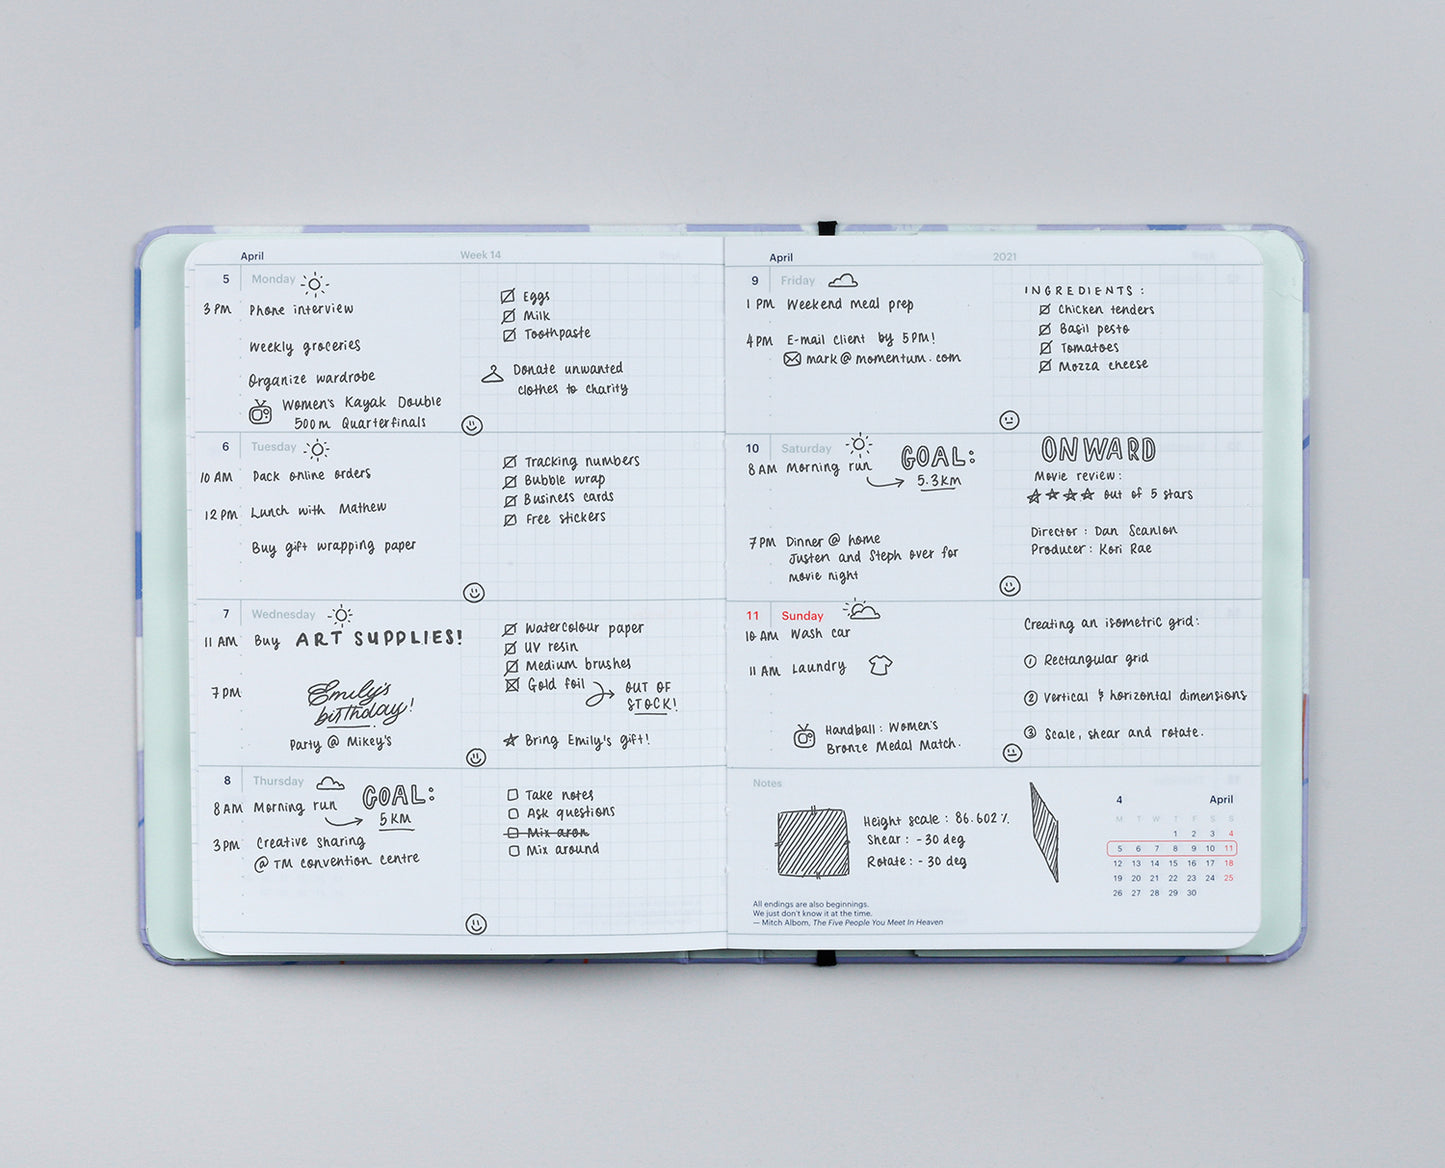 April
Week 14
5 Monday
3 PM Phone interview
Weekly groceries
Organize wardrobe
Women's Kayak Double
500m Quarterfinals
Eggs
Milk
Toothpaste
Donate unwanted
clothes to charity
6 Tuesday
10 AM Pack online orders
12 PM Lunch with Mathew
Buy gift wrapping paper
Tracking numbers
Bubble wrap
Business cards
Free stickers
7 Wednesday
11 AM Buy ART SUPPLIES!
7 PM Emily's
birthday!
Party @ Mikey's
Watercolour paper
UV resin
Medium brushes
Gold foil
OUT OF
STOCK!
Bring Emily's gift!
8 Thursday
8 AM Morning run
GOAL:
5 KM
3 PM Creative sharing
@ TM convention centre
Take notes
Ask questions
Mix aron
Mix around
April
2021
9 Friday
1 PM Weekend meal prep
4 PM E-mail client by 5PM!
mark@momentum.com
INGREDIENTS:
Chicken tenders
Basil pesto
Tomatoes
Mozza cheese
10 Saturday
8 AM Morning run
GOAL:
5.3KM
7 PM Dinner @ home
Justen and Steph over for
movie night
ONWARD
Movie review:
out of 5 stars
Director: Dan Scanlon
Producer: Kori Rae
11 Sunday
10 AM Wash car
11 AM Laundry
Handball: Women's
Bronze Medal Match.
Creating an isometric grid:
① Rectangular grid
② Vertical & horizontal dimensions
③ Scale, shear and rotate.
Notes
Height scale: 86.602%
Shear: -30 deg
Rotate: -30 deg
All endings are also beginnings.
We just don't know it at the time.
— Mitch Albom, The Five People You Meet In Heaven
4 April
M T W T F S S
1 2 3 4
5 6 7 8 9 10 11
12 13 14 15 16 17 18
19 20 21 22 23 24 25
26 27 28 29 30